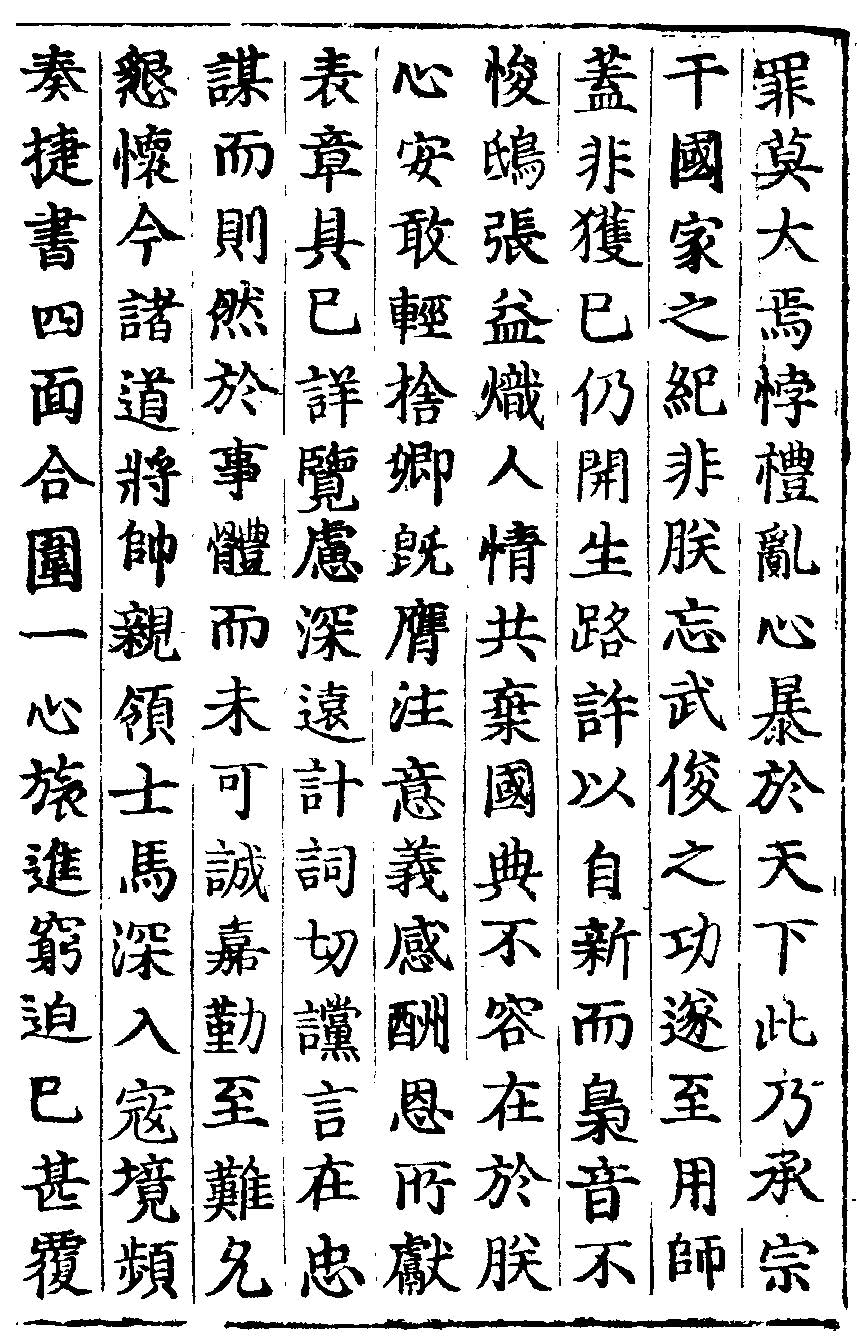 罪莫大焉悖禮亂心暴於天下此乃承宗
干國家之紀非朕忘武俊之功遂至用師
蓋非獲已仍開生路許以自新而梟音不
悛鴟張益熾人情共棄國典不容在於朕
心安敢輕捨卿旣膺注意義感酬恩所獻
表章具已詳覽慮深遠計詞切讜言在忠
謀而則然於事體而未可誠嘉勤至難允
懇懷今諸道將帥親領士馬深入寇境頻
奏捷書四面合圍一心旅進窮迫已甚覆